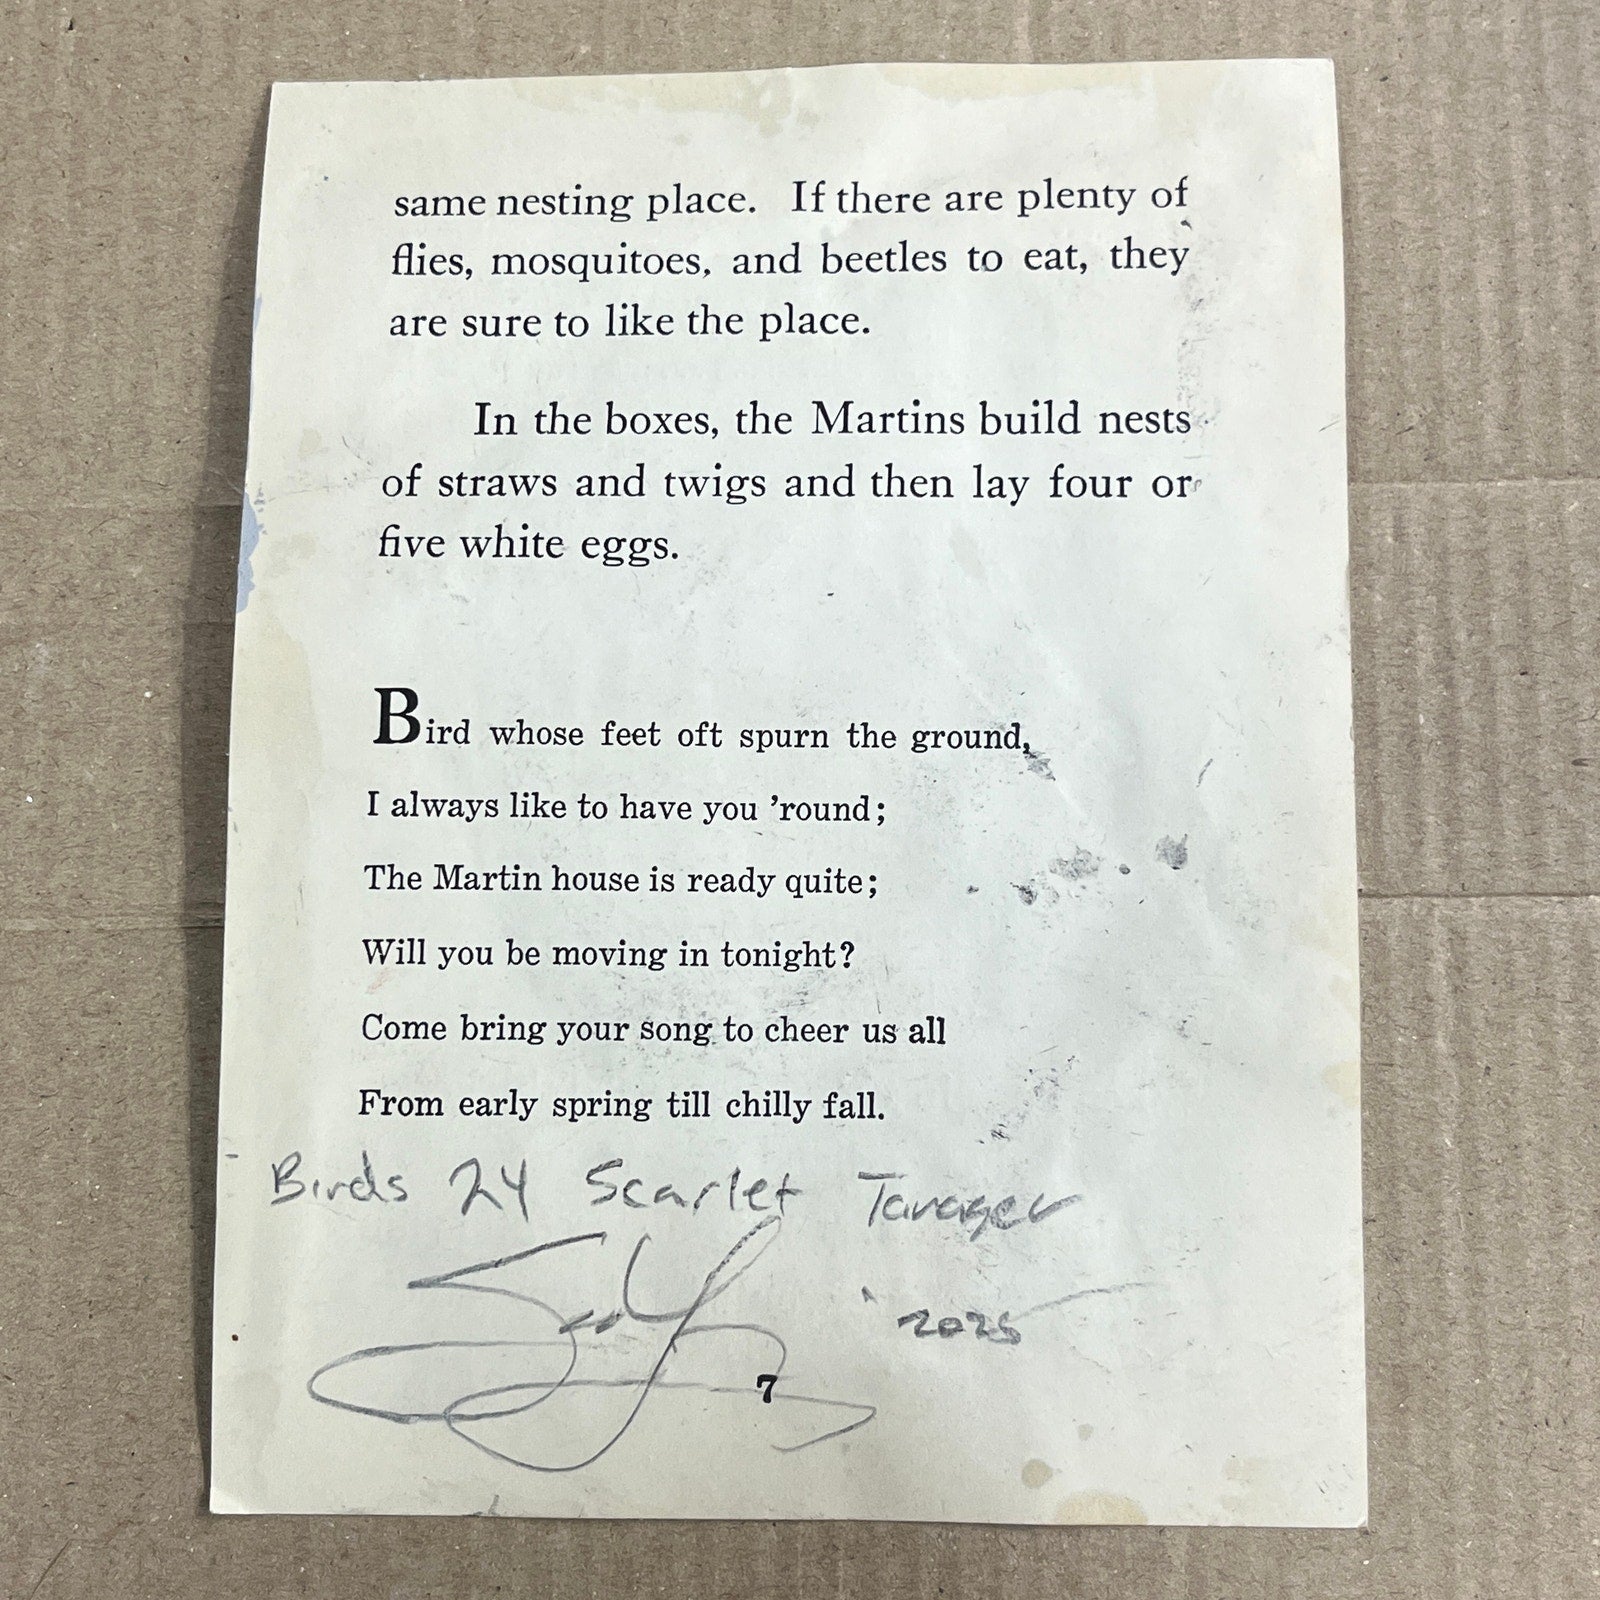 same nesting place. If there are plenty of
flies, mosquitoes, and beetles to eat, they
are sure to like the place.
In the boxes, the Martins build nests
of straws and twigs and then lay four or
five white eggs.
Bird whose feet oft spurn the ground,
I always like to have you 'round;
The Martin house is ready quite;
Will you be moving in tonight?
Come bring your song to cheer us all
From early spring till chilly fall.
Birds 24 Scarlet Tanager
2025
7